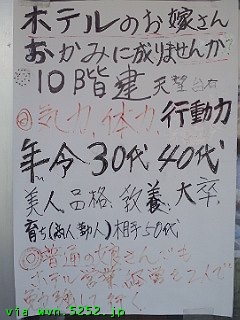 ホテルのお嫁さん
おかみに成りませんか?
10B階建 天望台有
◎気力、体力、行動力
年令30代40代
美人、品格、教義、大卒、
育ち(商人勤人)相手50代
◎普通の嫁さんでも
ホテル営業経営を2人で
行く
via mvn.5252.jp